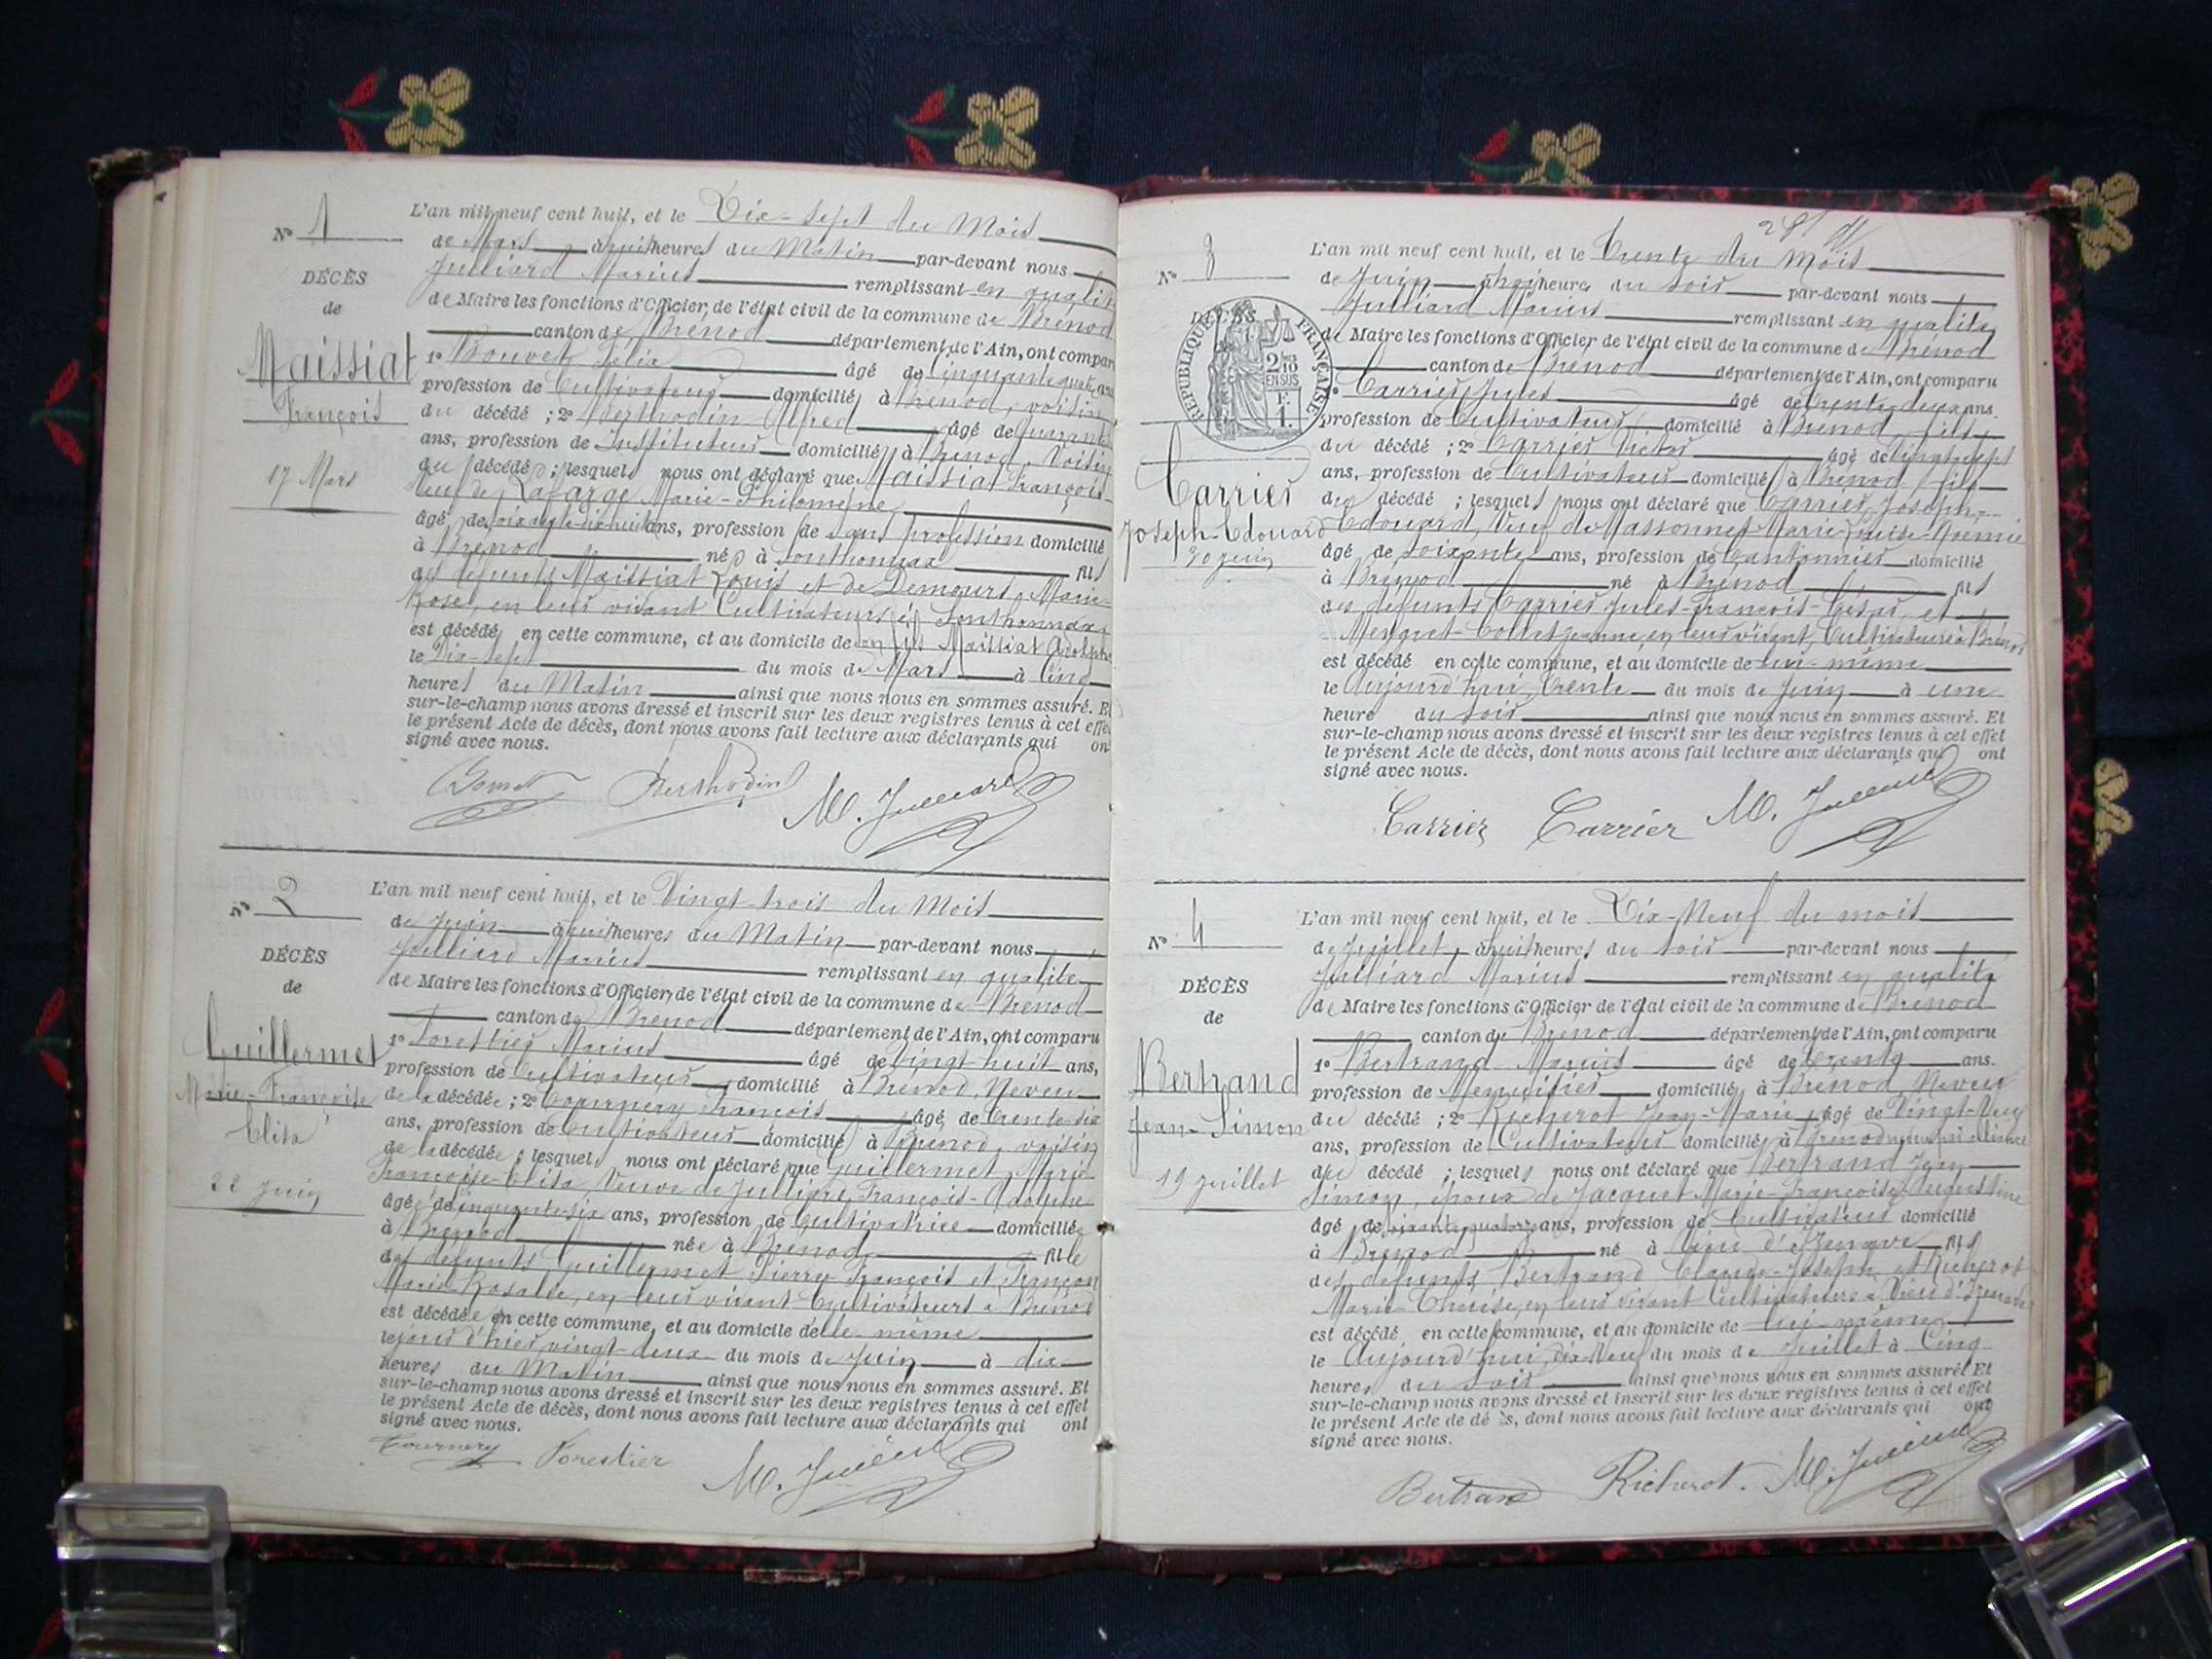 N° 1
DÉCÈS
de
Maissiat
François
17 Mars
L'an mil neuf cent huit, et le Dix-sept du Mois
de Mars à huit heures du Matin par-devant nous
Julliard Marius remplissant en qualité
de Maire les fonctions d'Officier de l'état civil de la commune de Brénod
canton de Brénod département de l'Ain, ont comparu
1° Bouvet Félix âgé de cinquante quatre ans
profession de Cultivateur domicilié à Brénod, voisin
du décédé ; 2° Berthodin Alfred âgé de quarante
ans, profession de Instituteur domicilié à Brénod, Voisin
du décédé ; lesquels nous ont déclaré que Maissiat François
Veuf de Lafarge Marie-Philomène
âgé de soixante-dix-huit ans, profession de sans profession domicilié
à Brénod né à Sonthonnax fils
des défunts Maissiat Louis et de Demours Marie-
Rose, en leur vivant Cultivateurs à Sonthonnax
est décédé en cette commune, et au domicile de son fils Maissiat Adolphe
le Dix-sept du mois de Mars à Cinq
heures du Matin ainsi que nous nous en sommes assuré. Et
sur-le-champ nous avons dressé et inscrit sur les deux registres tenus à cet effet
le présent Acte de décès, dont nous avons fait lecture aux déclarants qui ont
signé avec nous.
Bouvet Berthodin M. Julliard
N° 2
DÉCÈS
de
Guillermet
Marie-Françoise
Elisa
22 Juin
L'an mil neuf cent huit, et le Vingt-trois du Mois
de Juin à huit heures du Matin par-devant nous
Julliard Marius remplissant en qualité
de Maire les fonctions d'Officier de l'état civil de la commune de Brénod
canton de Brénod département de l'Ain, ont comparu
1° Forestier Marius âgé de vingt-huit ans,
profession de Cultivateur domicilié à Brénod, Neveu
de la décédée ; 2° Tournery François âgé de trente-six
ans, profession de Cultivateur domicilié à Brénod, voisin
de la décédée ; lesquels nous ont déclaré que Guillermet Marie
Françoise-Elisa Veuve de Julliard François-Adolphe
âgée de cinquante-six ans, profession de Cultivatrice domiciliée
à Brénod née à Brénod fille
des défunts Guillermet Pierre François et Françon
Marie-Rosalie, en leur vivant Cultivateurs à Brénod
est décédée en cette commune, et au domicile d'elle-même
le jour d'hier vingt-deux du mois de Juin à dix
heures du Matin ainsi que nous nous en sommes assuré. Et
sur-le-champ nous avons dressé et inscrit sur les deux registres tenus à cet effet
le présent Acte de décès, dont nous avons fait lecture aux déclarants qui ont
signé avec nous.
Tournery Forestier M. Julliard
N° 3
DÉCÈS
REPUBLIQUE FRANÇAISE
2/10 EN SUS
F. 1.
Carrier
Joseph-Edouard
30 Juin
L'an mil neuf cent huit, et le Trente du Mois
de Juin à heures du soir par-devant nous
Julliard Marius remplissant en qualité
de Maire les fonctions d'Officier de l'état civil de la commune de Brénod
canton de Brénod département de l'Ain, ont comparu
1° Carrier Jules âgé de trente-deux ans.
profession de Cultivateur domicilié à Brénod, fils
du décédé ; 2° Carrier Victor âgé de vingt-sept
ans, profession de Cultivateur domicilié à Brénod, fils
du décédé ; lesquels nous ont déclaré que Carrier Joseph-
Edouard, Veuf de Massonnet Marie-Louise-Noémie
âgé de soixante ans, profession de Cantonnier domicilié
à Brénod né à Brénod fils
des défunts Carrier Jules-François-César, et
Mengret-Collet Jeanne, en leur vivant, Cultivateurs à Brénod
est décédé en cette commune, et au domicile de lui-même
le Aujourd'hui, trente du mois de Juin à une
heure du soir ainsi que nous nous en sommes assuré. Et
sur-le-champ nous avons dressé et inscrit sur les deux registres tenus à cet effet
le présent Acte de décès, dont nous avons fait lecture aux déclarants qui ont
signé avec nous.
Carrier Carrier M. Julliard
N° 4
DÉCÈS
de
Bertrand
Jean-Simon
19 Juillet
L'an mil neuf cent huit, et le Dix-Neuf du mois
de Juillet, à huit heures du soir par-devant nous
Julliard Marius remplissant en qualité
de Maire les fonctions d'Officier de l'état civil de la commune de Brénod
canton de Brénod département de l'Ain, ont comparu
1° Bertrand Marius âgé de trente ans.
profession de Menuisier domicilié à Brénod, Neveu
du décédé ; 2° Richerot Jean-Marie âgé de Vingt-Neuf
ans, profession de Cultivateur domicilié à Brénod neveu par alliance
du décédé ; lesquels nous ont déclaré que Bertrand Jean
Simon, époux de Jacquet Marie-Françoise Augustine
âgé de soixante-quatorze ans, profession de Cultivateur domicilié
à Brénod né à Vieu d'Izenave fils
des défunts Bertrand Claude-Joseph et Richerot
Marie-Thérèse, en leur vivant Cultivateurs à Vieu d'Izenave
est décédé en cette commune, et au domicile de lui-même
le Aujourd'hui, dix-Neuf du mois de Juillet à Cinq
heures du soir ainsi que nous nous en sommes assuré. Et
sur-le-champ nous avons dressé et inscrit sur les deux registres tenus à cet effet
le présent Acte de décès, dont nous avons fait lecture aux déclarants qui ont
signé avec nous.
Bertrand Richerot. M. Julliard